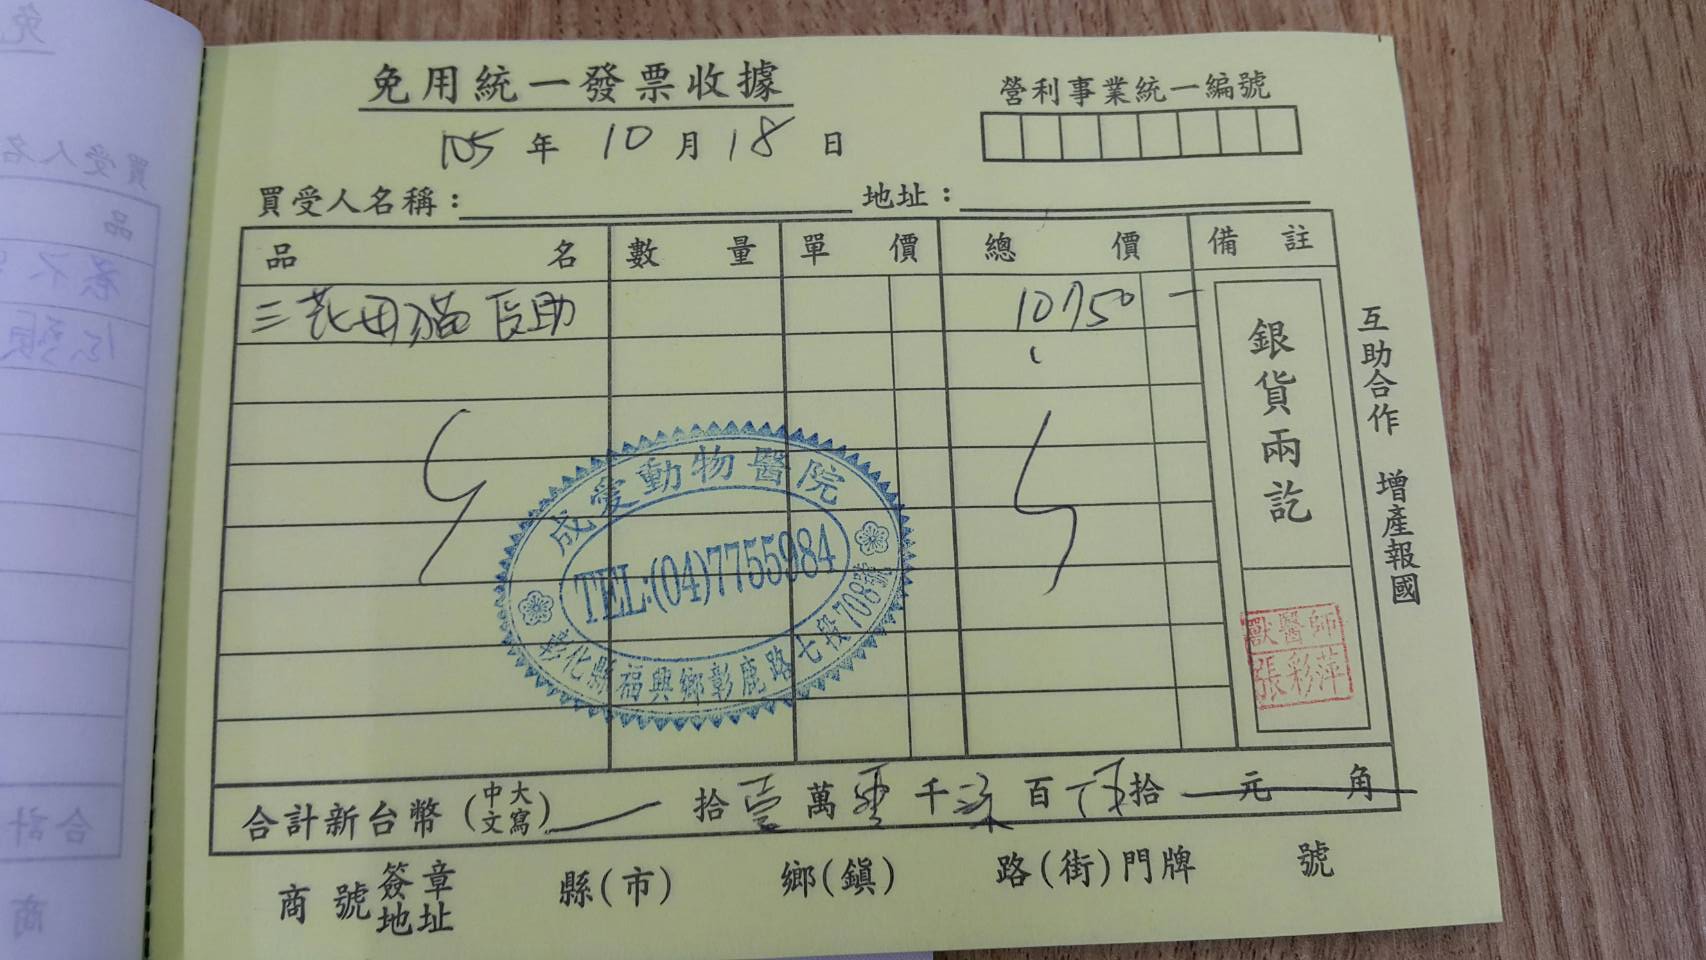 免用統一發票收據
營利事業統一編號
105年10月18日
買受人名稱：
地址：
品名 數量 單價 總價 備註
三花母貓 10750
銀貨兩訖
互助合作 增產報國
成愛動物醫院
TEL:(04)7755984
彰化縣福興鄉彰鹿路七段708號
獸醫師
張彩萍
合計新台幣(中文大寫) 拾壹萬零千柒百伍拾元角
商號簽章地址 縣(市) 鄉(鎮) 路(街)門牌 號
免
買受人名
品
合計
商